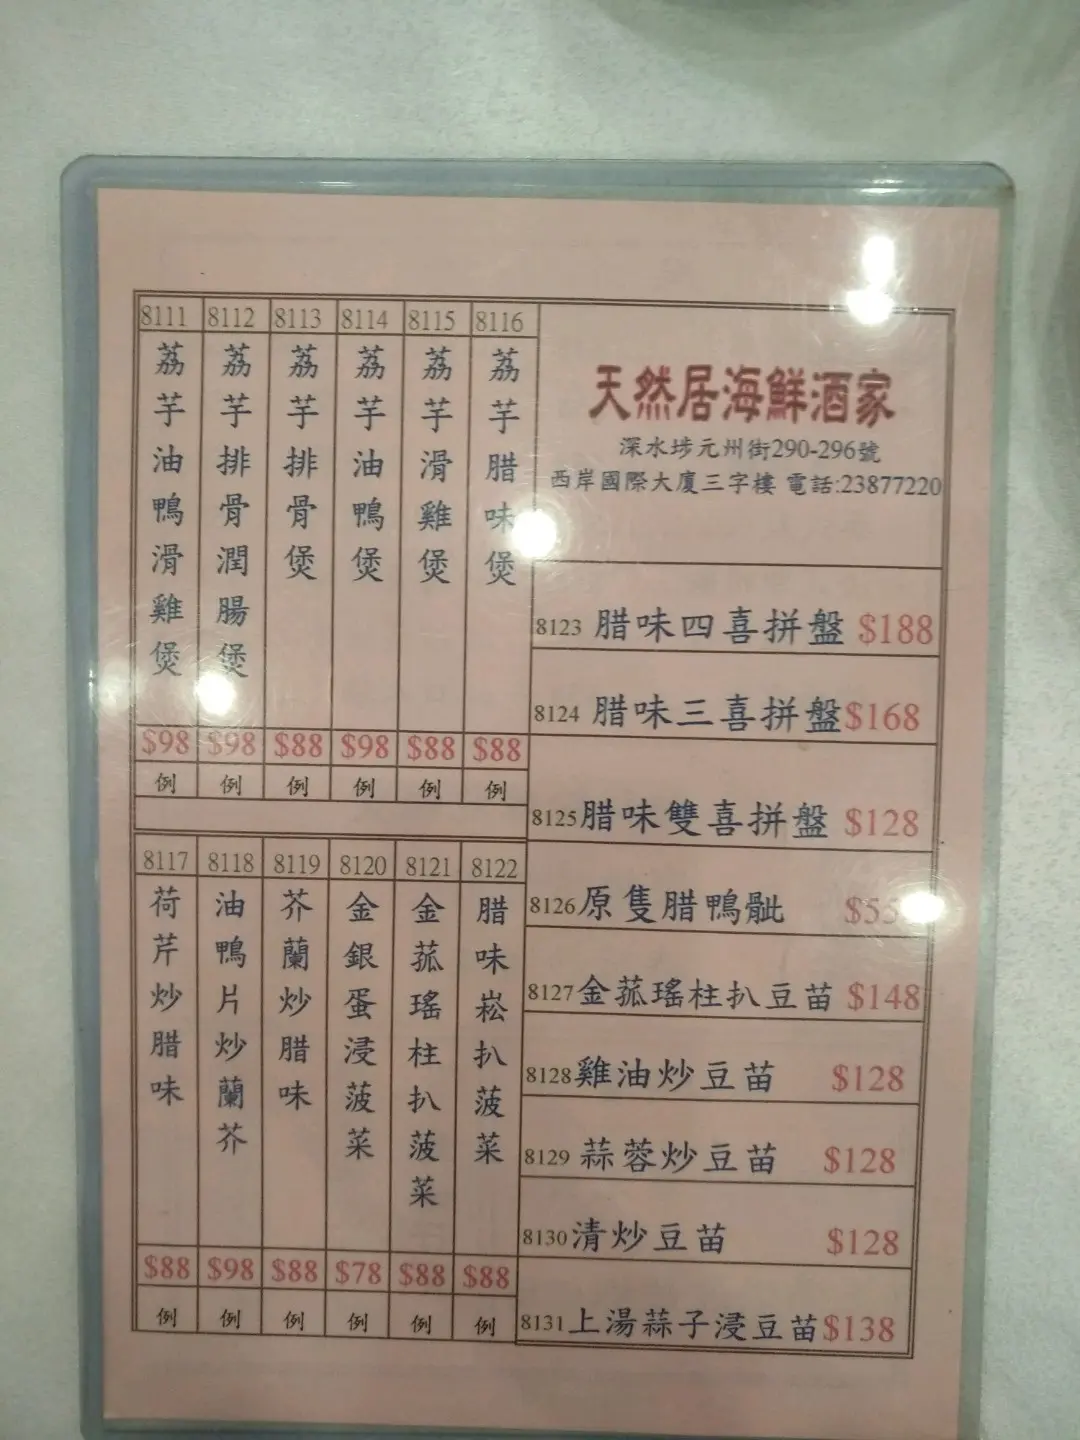 8111
荔芋油鴨滑雞煲
$98
例
8112
荔芋排骨潤腸煲
$98
例
8113
荔芋排骨煲
$88
例
8114
荔芋油鴨煲
$98
例
8115
荔芋滑雞煲
$88
例
8116
荔芋腊味煲
$88
例
8117
荷芹炒腊味
$88
例
8118
油鴨片炒蘭芥
$98
例
8119
芥蘭炒腊味
$88
例
8120
金銀蛋浸菠菜
$78
例
8121
金菰瑤柱扒菠菜
$88
例
8122
腊味崧扒菠菜
$88
例
天然居海鮮酒家
深水埗元州街290-296號
西岸國際大廈三字樓 電話:23877220
8123 腊味四喜拼盤 $188
8124 腊味三喜拼盤 $168
8125 腊味雙喜拼盤 $128
8126 原隻腊鴨髀
8127 金菰瑤柱扒豆苗 $148
8128 雞油炒豆苗 $128
8129 蒜蓉炒豆苗 $128
8130 清炒豆苗 $128
8131 上湯蒜子浸豆苗 $138